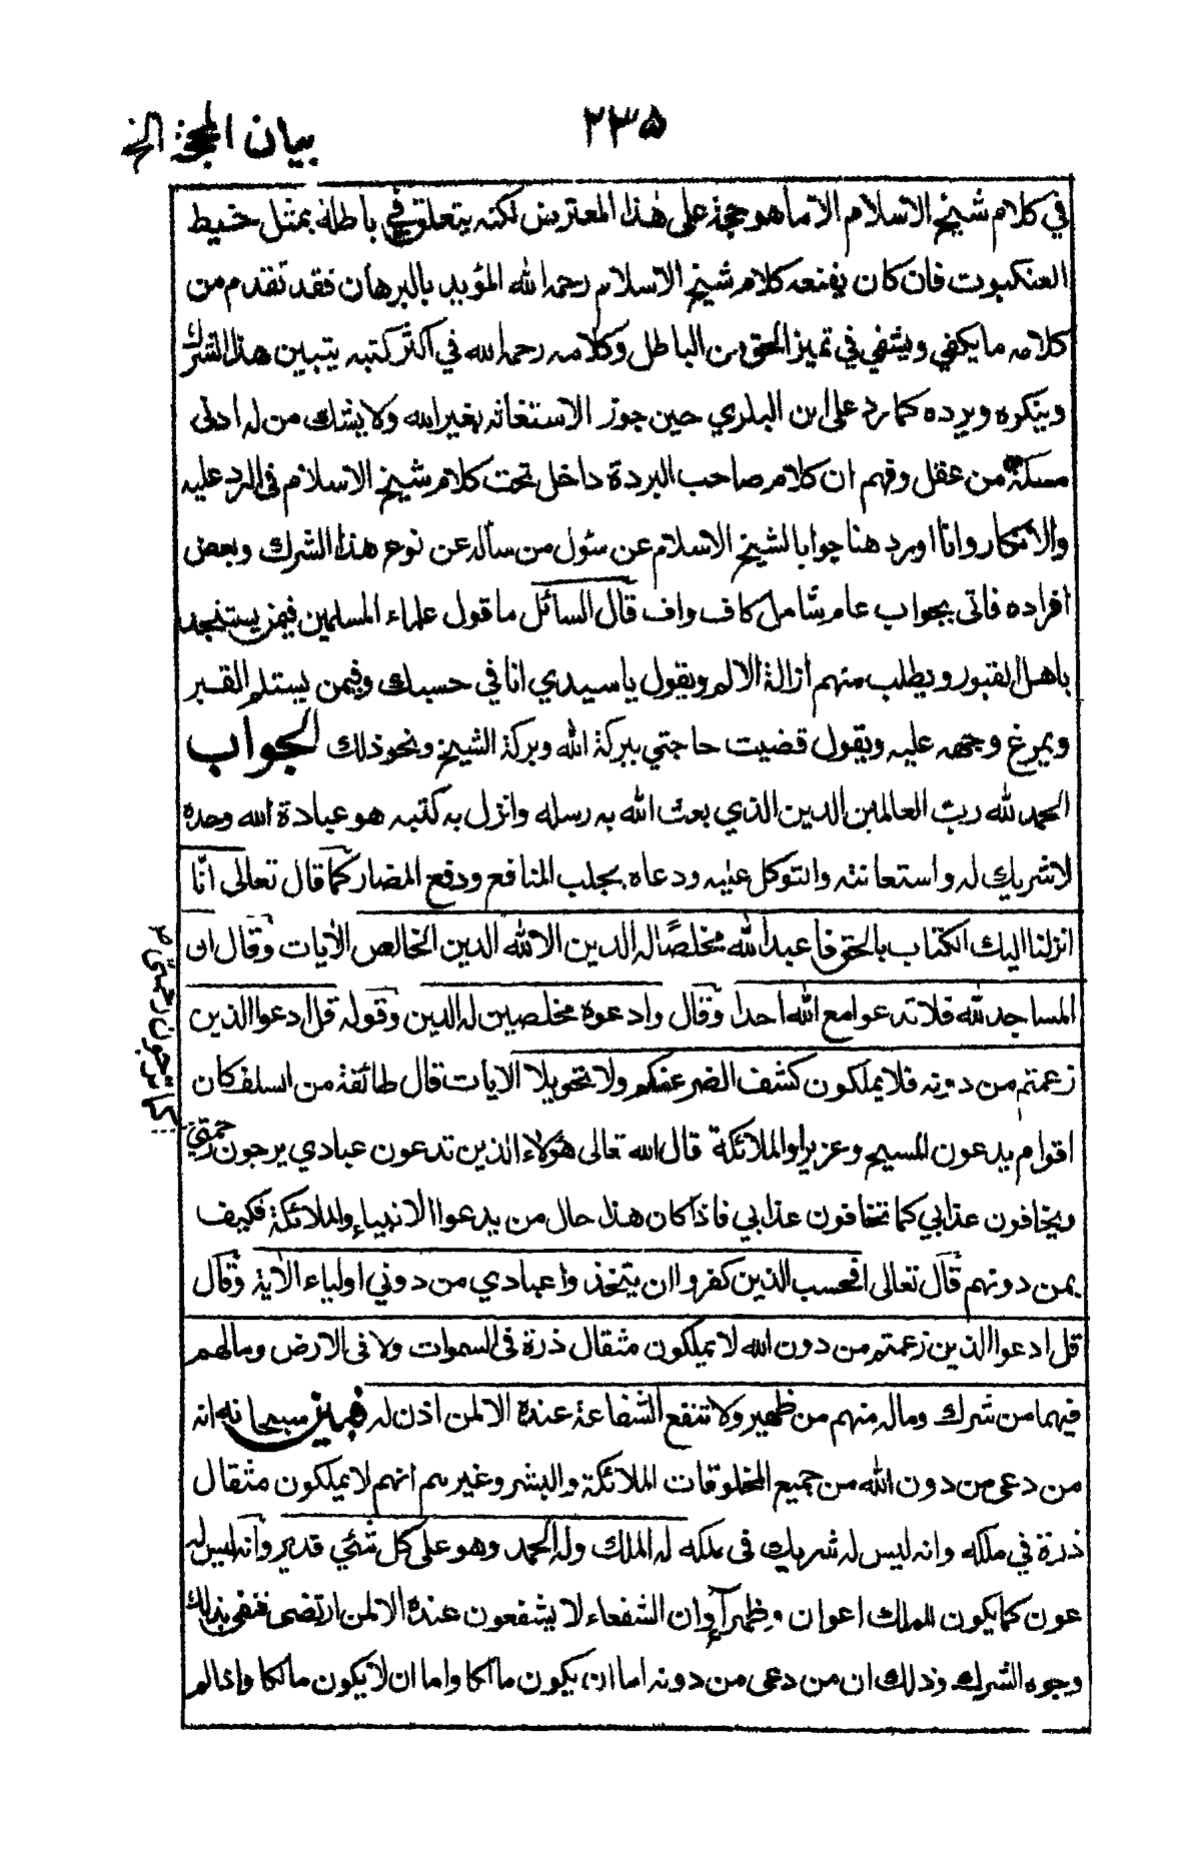 ٢٣٥
بيان المحجة الخ
في كلام شيخ الاسلام الا ما هو حجة على هذا المعترض لكنه يتعلق في باطله بمثل خيط
العنكبوت فان كان يقنعه كلام شيخ الاسلام رحمه الله المؤيد بالبرهان فقد تقدم من
كلامه ما يكفي ويشفي في تميز الحق من الباطل وكلامه رحمه الله في اكثر كتبه يتبين هذا الشرك
وينكره ويرده كما رد على ابن البكري حين جوز الاستغاثه بغير الله ولا يشك من له ادنى
مسكة من عقل وفهم ان كلام صاحب البردة داخل تحت كلام شيخ الاسلام فى الرد عليه
والانكار وانا اورد هنا جوابا لشيخ الاسلام عن سئول من سأله عن نوع هذا الشرك وبعض
افراده فاتى بجواب عام شامل كاف واف قال السائل ما قول علماء المسلمين فيمن يستنجد
باهل القبور ويطلب منهم ازالة الالم ويقول يا سيدي انا في حسبك وفيمن يستلم القبر
ويمرغ وجهه عليه ويقول قضيت حاجتي ببركة الله وبركة الشيخ ونحو ذلك الجواب
الحمد لله ربّ العالمين الدين الذي بعث الله به رسله وانزل به كتبه هو عبادة الله وحده
لا شريك له واستعانته والتوكل عليه ودعاه بجلب المنافع ودفع المضار كما قال تعالى انّا
انزلنا اليك الكتاب بالحق فاعبد الله مخلصًا له الدين الا لله الدين الخالص الآيات وقال ان
المساجد لله فلا تدعوا مع الله احدا وقال وادعوه مخلصين له الدين وقوله قل ادعوا الذين
زعمتم من دونه فلا يملكون كشف الضر عنكم ولا تحويلا الايات قال طائفة من السلف كان
اقوام يدعون المسيح وعزيرا والملائكة قال الله تعالى هؤلاء الذين تدعون عبادي يرجون رحمتي
كما ترجون رحمتي ٢
ويخافون عذابي كما تخافون عذابي فاذا كان هذا حال من يدعوا الانبياء والملائكة فكيف
بمن دونهم قال تعالى افحسب الذين كفروا ان يتخذ وا عبادي من دوني اولياء الآية وقال
قل ادعوا الذين زعمتم من دون الله لا يملكون مثقال ذرة فى السموات ولا فى الارض وما لهم
فيهما من شرك وما له منهم من ظهير ولا تنفع الشفاعة عنده الا لمن اذن له فبين سبحانه انه
من دعى من دون الله من جميع المخلوقات الملائكة والبشر وغيرهم انهم لا يملكون مثقال
ذرة في ملكه وانه ليس له شريك فى ملكه له الملك وله الحمد وهو على كل شئي قدير وانه ليس له
عون كما يكون للملك اعوان وظهراء وان الشفعاء لا يشفعون عنده الا لمن ارتضى فنفى بذلك
وجوه الشرك وذلك ان من دعى من دونه اما ان يكون مالكا واما ان لا يكون مالكا واذا لم